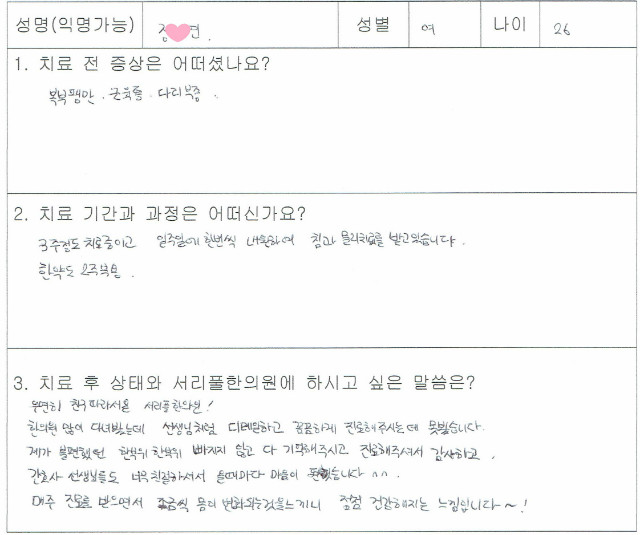 성명(익명가능) 정 연. 성별 여 나이 26
1. 치료 전 증상은 어떠셨나요?
복부팽만. 근육통. 다리부종.
2. 치료 기간과 과정은 어떠신가요?
3주정도 치료중이고 일주일에 한번씩 내원하여 침과 물리치료를 받고있습니다.
한약도 2주복용.
3. 치료 후 상태와 서리풀한의원에 하시고 싶은 말씀은?
우연히 친구따라서온 서리풀한의원!
한의원 많이 다녀봤는데 선생님처럼 디테일하고 꼼꼼하게 진료해주시는데 못봤습니다.
제가 불편했던 한부위 한부위 빠지지 않고 다 기억해주시고 진료해주셔서 감사하고.
간호사 선생님들도 너무친절하셔서 올때마다 마음이 ^^.
매주 진료를 받으면서 조금씩 몸이 변화되는것을느끼니 점점 건강해지는 느낌입니다~!